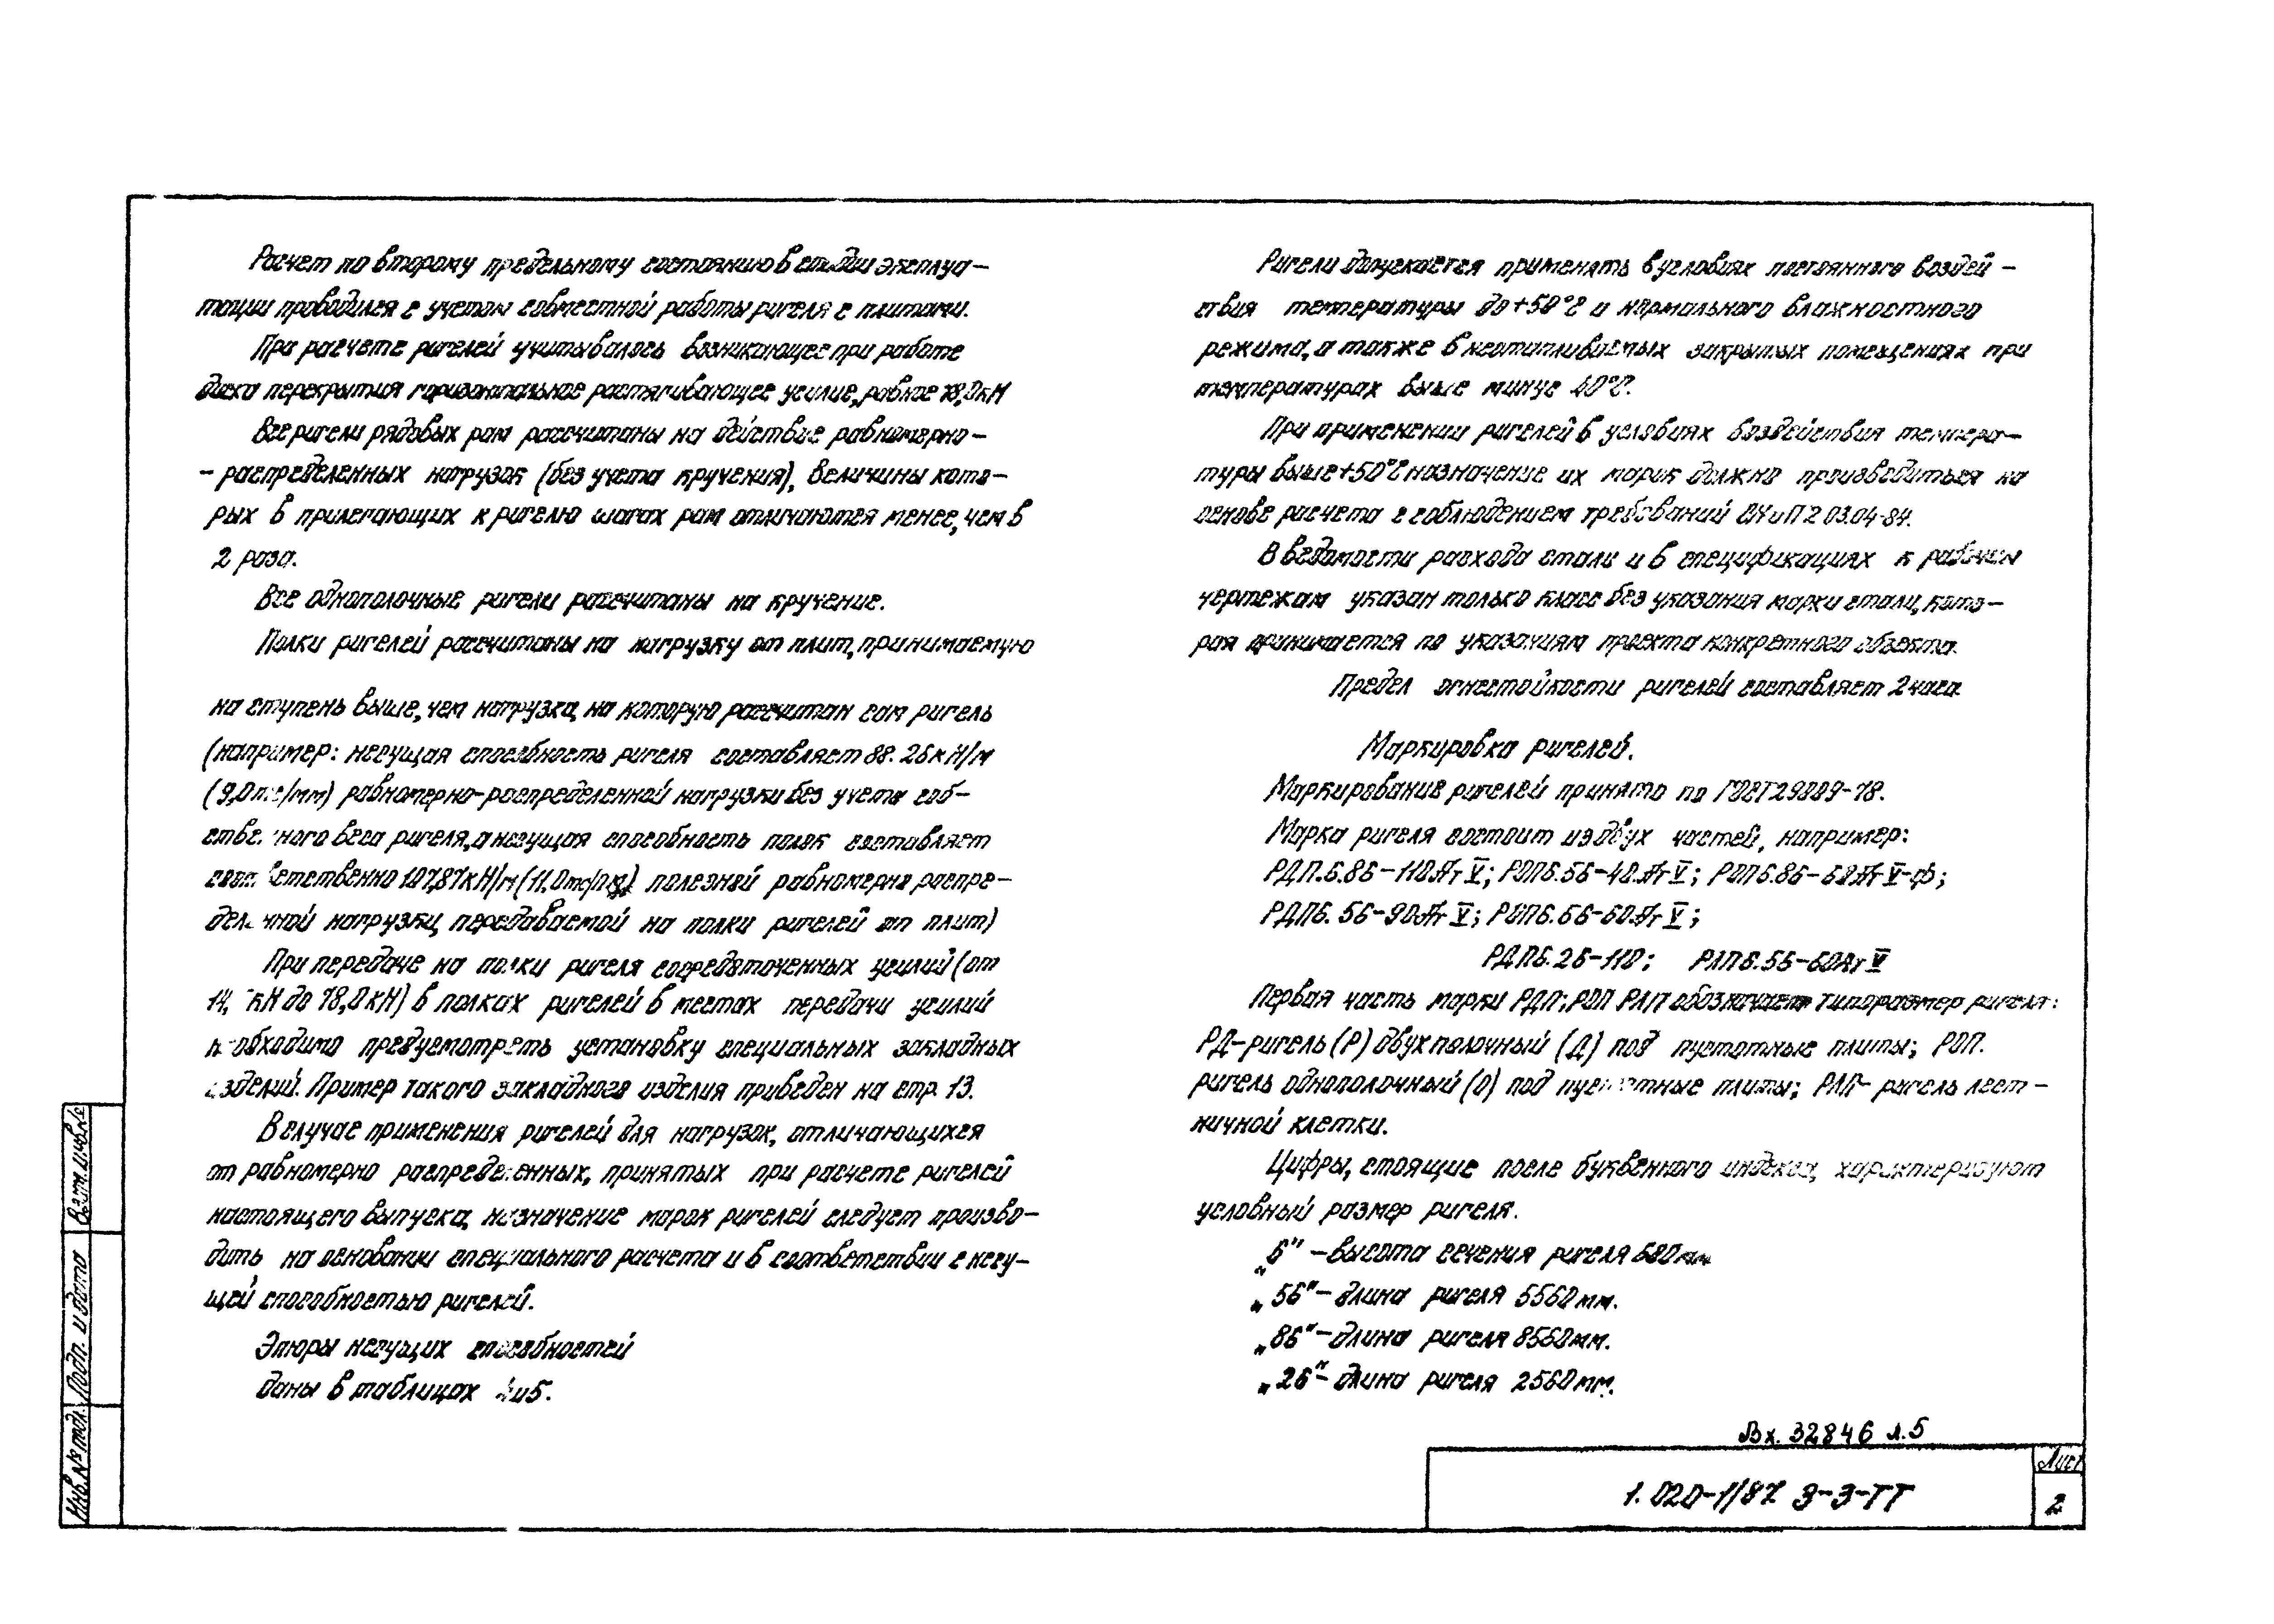 Расчет по второму предельному состоянию в стадии эксплуа-
тации проводился с учетом совместной работы ригеля с плитами.
При расчете ригелей учитывалось возникающее при работе
диска перекрытия горизонтальное растягивающее усилие, равное 78,0кН
Все ригели рядовых рам рассчитаны на действие равномерно-
-распределенных нагрузок (без учета кручения), величины кото-
рых в прилегающих к ригелю шагах рам отличаются менее, чем в
2 раза.
Все однополочные ригели рассчитаны на кручение.
Полки ригелей рассчитаны на нагрузку от плит, принимаемую
на ступень выше, чем нагрузка, на которую рассчитан сам ригель
(например: несущая способность ригеля составляет 88.26кН/м
(9,0тс/мм) равномерно-распределенной нагрузки без учета соб-
ственного веса ригеля, а несущая способность полок составляет
соответственно 107,87кН/м (11,0тс/м) полезной равномерно распре-
деленной нагрузки, передаваемой на полки ригелей от плит)
При передаче на полки ригеля сосредоточенных усилий (от
14, кН до 78,0кН) в полках ригелей в местах передачи усилий
необходимо предусмотреть установку специальных закладных
изделий. Пример такого закладного изделия приведен на стр. 13.
В случае применения ригелей для нагрузок, отличающихся
от равномерно распределенных, принятых при расчете ригелей
настоящего выпуска, назначение марок ригелей следует произво-
дить на основании специального расчета и в соответствии с несу-
щей способностью ригелей.
Эпюры несущих способностей
даны в таблицах и 5.
Ригели допускается применять в условиях постоянного воздей-
ствия температуры до +50°С и нормального влажностного
режима, а также в неотапливаемых закрытых помещениях при
температурах выше минус 40°С.
При применении ригелей в условиях воздействия темпера-
туры выше +50°С назначение их марок должно производиться на
основе расчета с соблюдением требований СНиП 2 03.04-84.
В ведомости расхода стали и в спецификациях к рабочим
чертежам указан только класс без указания марки стали, кото-
рая принимается по указаниям проекта конкретного объекта.
Предел огнестойкости ригелей составляет 2 часа
Маркировка ригелей.
Маркирование ригелей принято по ГОСТ 29009-78.
Марка ригеля состоит из двух частей, например:
РДП.6.86-110АтV; РОП6.56-40.АтV; РОП6.86-60АтV-Ф;
РДП6.56-90АтV; РОП6.56-60АтV;
РДП6.26-110; РЛП6.56-60АтV
Первая часть марки РДП; РОП РЛП обозначает типоразмер ригеля:
РД-ригель (Р) двухполочный (Д) под пустотные плиты; РОП.
ригель однополочный (О) под пустотные плиты; РЛП- ригель лест-
ничной клетки.
Цифры, стоящие после буквенного индекса, характеризуют
условный размер ригеля.
„6" -высота сечения ригеля 600мм
„56"- длина ригеля 5560мм.
„86"-длина ригеля 8560мм.
„26"- длина ригеля 2560мм.
Вх. 32846 л.5
1.020-1/87 3-3-ТТ
Лист
2
Взам.инв.№
Подп. и дата
Инв.№ подл.